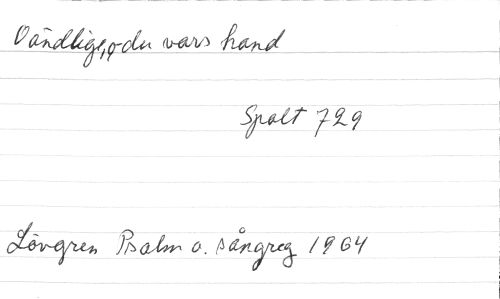 Oändlige, o du vars hand
Spalt 729
Lövgren Psalm o. sångreg 1964